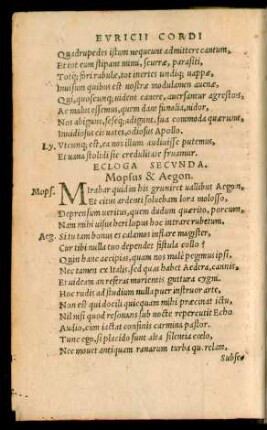 EVRICII CORDI
Quadrupedes istum nequeunt admittere cantum,
Et tot eum stipant mimi, scurræ, parasiti,
Totq; fori rabulæ, tot inertes undiq; uappæ,
Inuisum quibus est nostræ modulamen auenæ,
Qui, quoscunq; uident canere, auersantur agrestes,
Ac malus esse mus, quem dant fumalia, nidor,
Nos abigunt, seseq; adigunt, sua commoda quærunt,
Inuidiosus ei uates, odiosus Apollo.
Ly. Vtcunq; est, ea nos illum audiuisse putemus,
Et uana stolidi sic credulitate fruamur.
ECLOGA SECVNDA.
Mopsus & Aegon.
Mops. Mirabar quid in his grunniret uallibus Aegon,
Et citus ardenti soluebam lora molosso,
Deprensum ueritus, quem dudum quærito, porcum,
Nam mihi uisus heri lupus hoc intrare rubetum.
Aeg. Si tu tam bonus es calamos inflare magister,
Cur tibi nulla tuo dependet fistula collo?
Quin hanc accipis, quam nos malè pegmus ipsi,
Nec tamen ex Italis, sed qua habet Aedera, cannis,
Et uideam an referas murientis guttura cygni.
Hoc rudit ad studium nulla puer instruor arte,
Non est qui docili quicquam mihi præcinat ictu,
Nil nisi quod resonans sub nocte repercutit Echo
Audio, cum iactat consinis carmina pastor.
Tunc ego, si placido sunt alta silentia cœlo,
Nec mouet antiquam ranarum turba querelam,
Subse